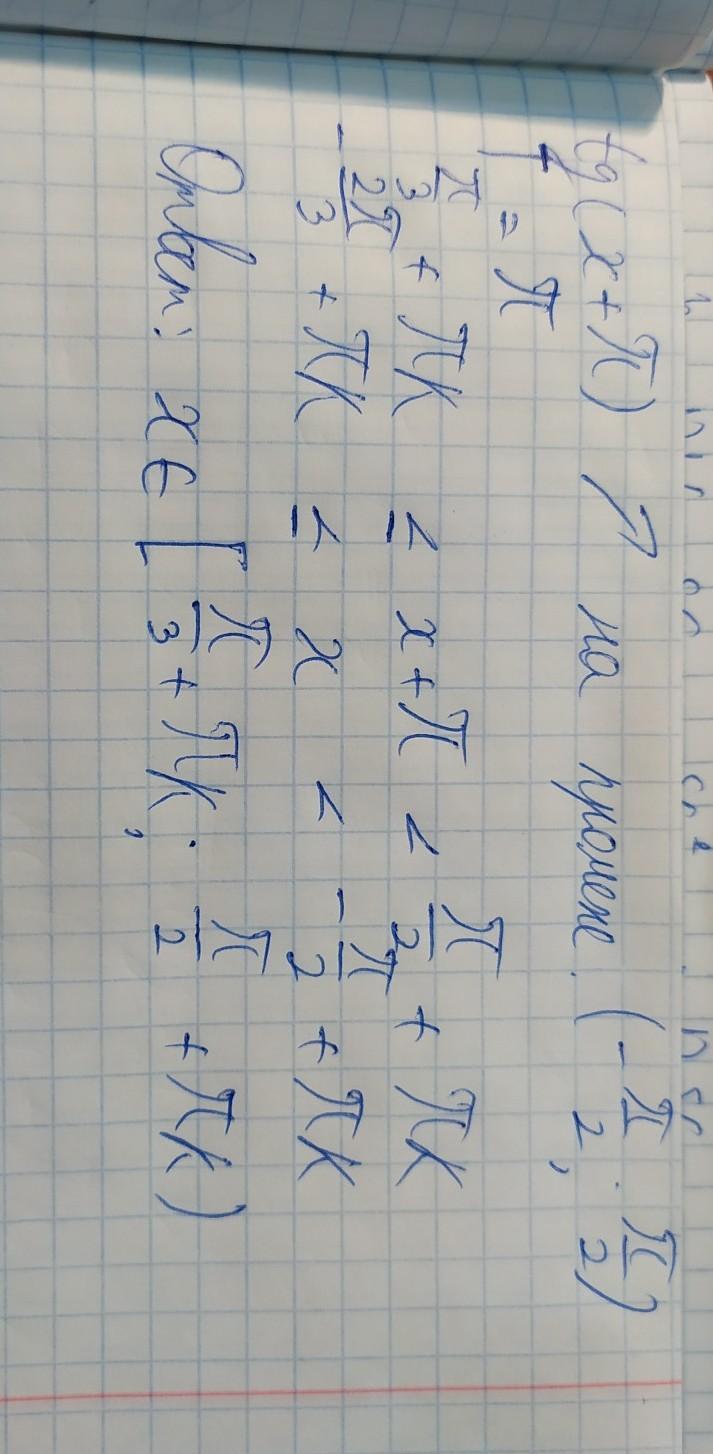 tg(x+π) ↗ на промеж. (-π/2; π/2)
T = π
π/3 + πk ≤ x+π < π/2 + πk
-2π/3 + πk ≤ x < -π/2 + πk
Ответ: x ∈ [π/3 + πk; π/2 + πk)